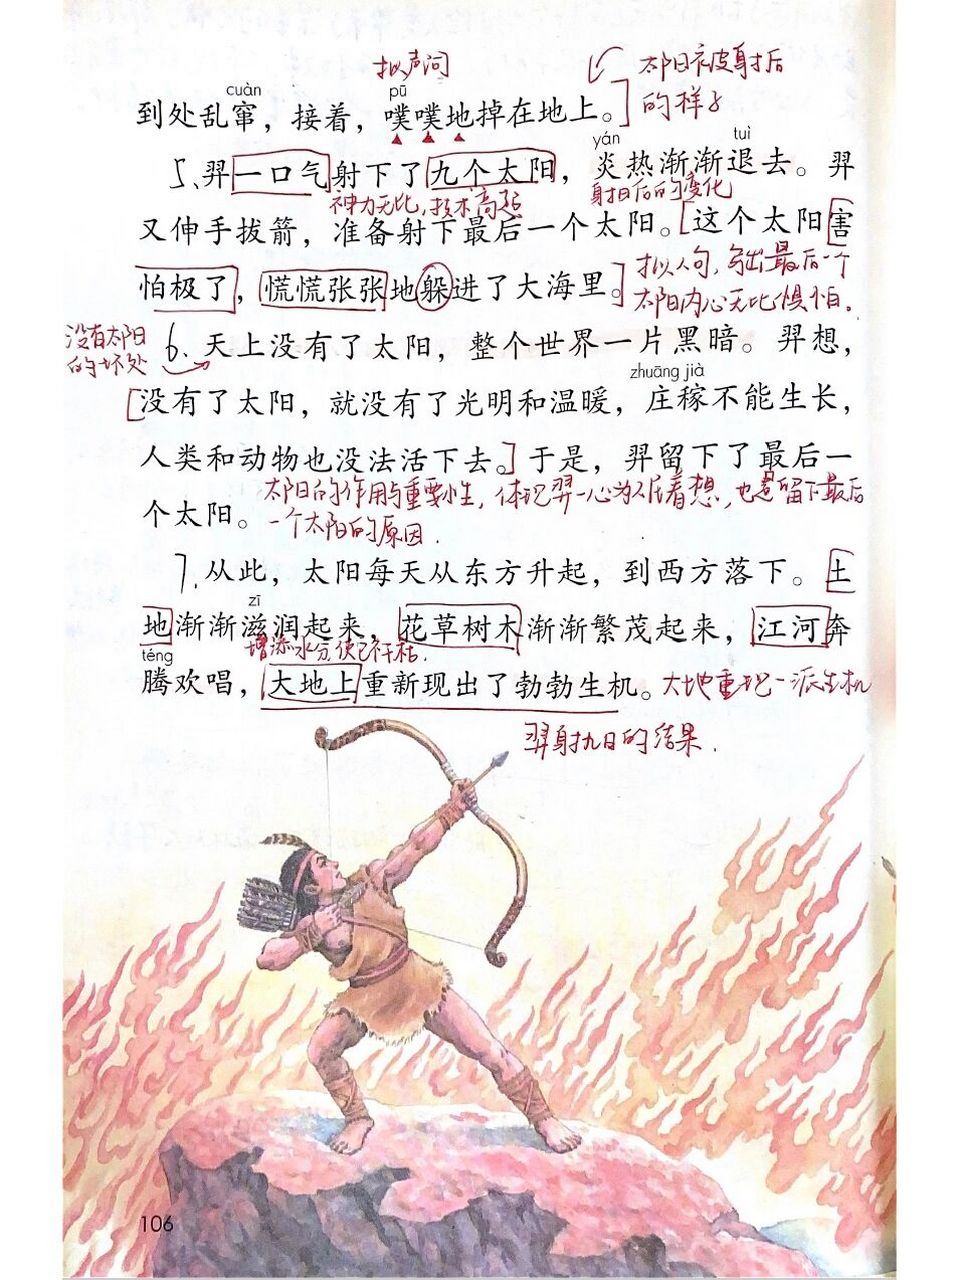 拟声词
太阳被射后
的样子
cuàn pū
到处乱窜，接着，噗噗地掉在地上。]
yán tuì
5、羿一口气射下了九个太阳，炎热渐渐退去。羿
神力无比，技术高超
射日后的变化
又伸手拔箭，准备射下最后一个太阳。[这个太阳害
怕极了，慌慌张张地躲进了大海里。]
拟人句，写出最后一个
太阳内心无比惧怕.
没有太阳
的坏处
6、天上没有了太阳，整个世界一片黑暗。羿想，
zhuāng jià
[没有了太阳，就没有了光明和温暖，庄稼不能生长，
人类和动物也没法活下去。]于是，羿留下了最后一
太阳的作用与重要性，体现羿一心为人居着想，也是留下最后
个太阳。
一个太阳的原因.
7.从此，太阳每天从东方升起，到西方落下。土
zī
地渐渐滋润起来，花草树木渐渐繁茂起来，江河奔
增添水分，使已干枯.
téng
腾欢唱，大地上重新现出了勃勃生机。
大地重现一派生机
羿射九日的结果.
106